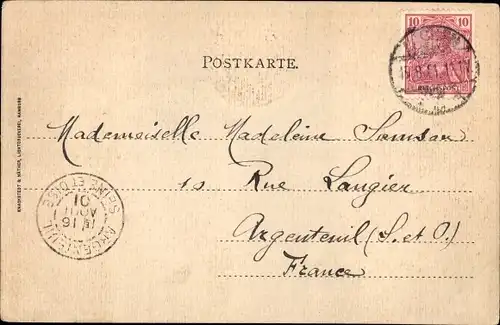 10 10
POSTKARTE.
Mademoiselle Madeleine Samson
10 Rue Laugier
Argenteuil (S. et O.)
France
ARGENTEUIL
SEINE ET OISE
16
AOUT
01
KNACKSTEDT & NÄTHER, LICHTDRUCKEREI, HAMBURG